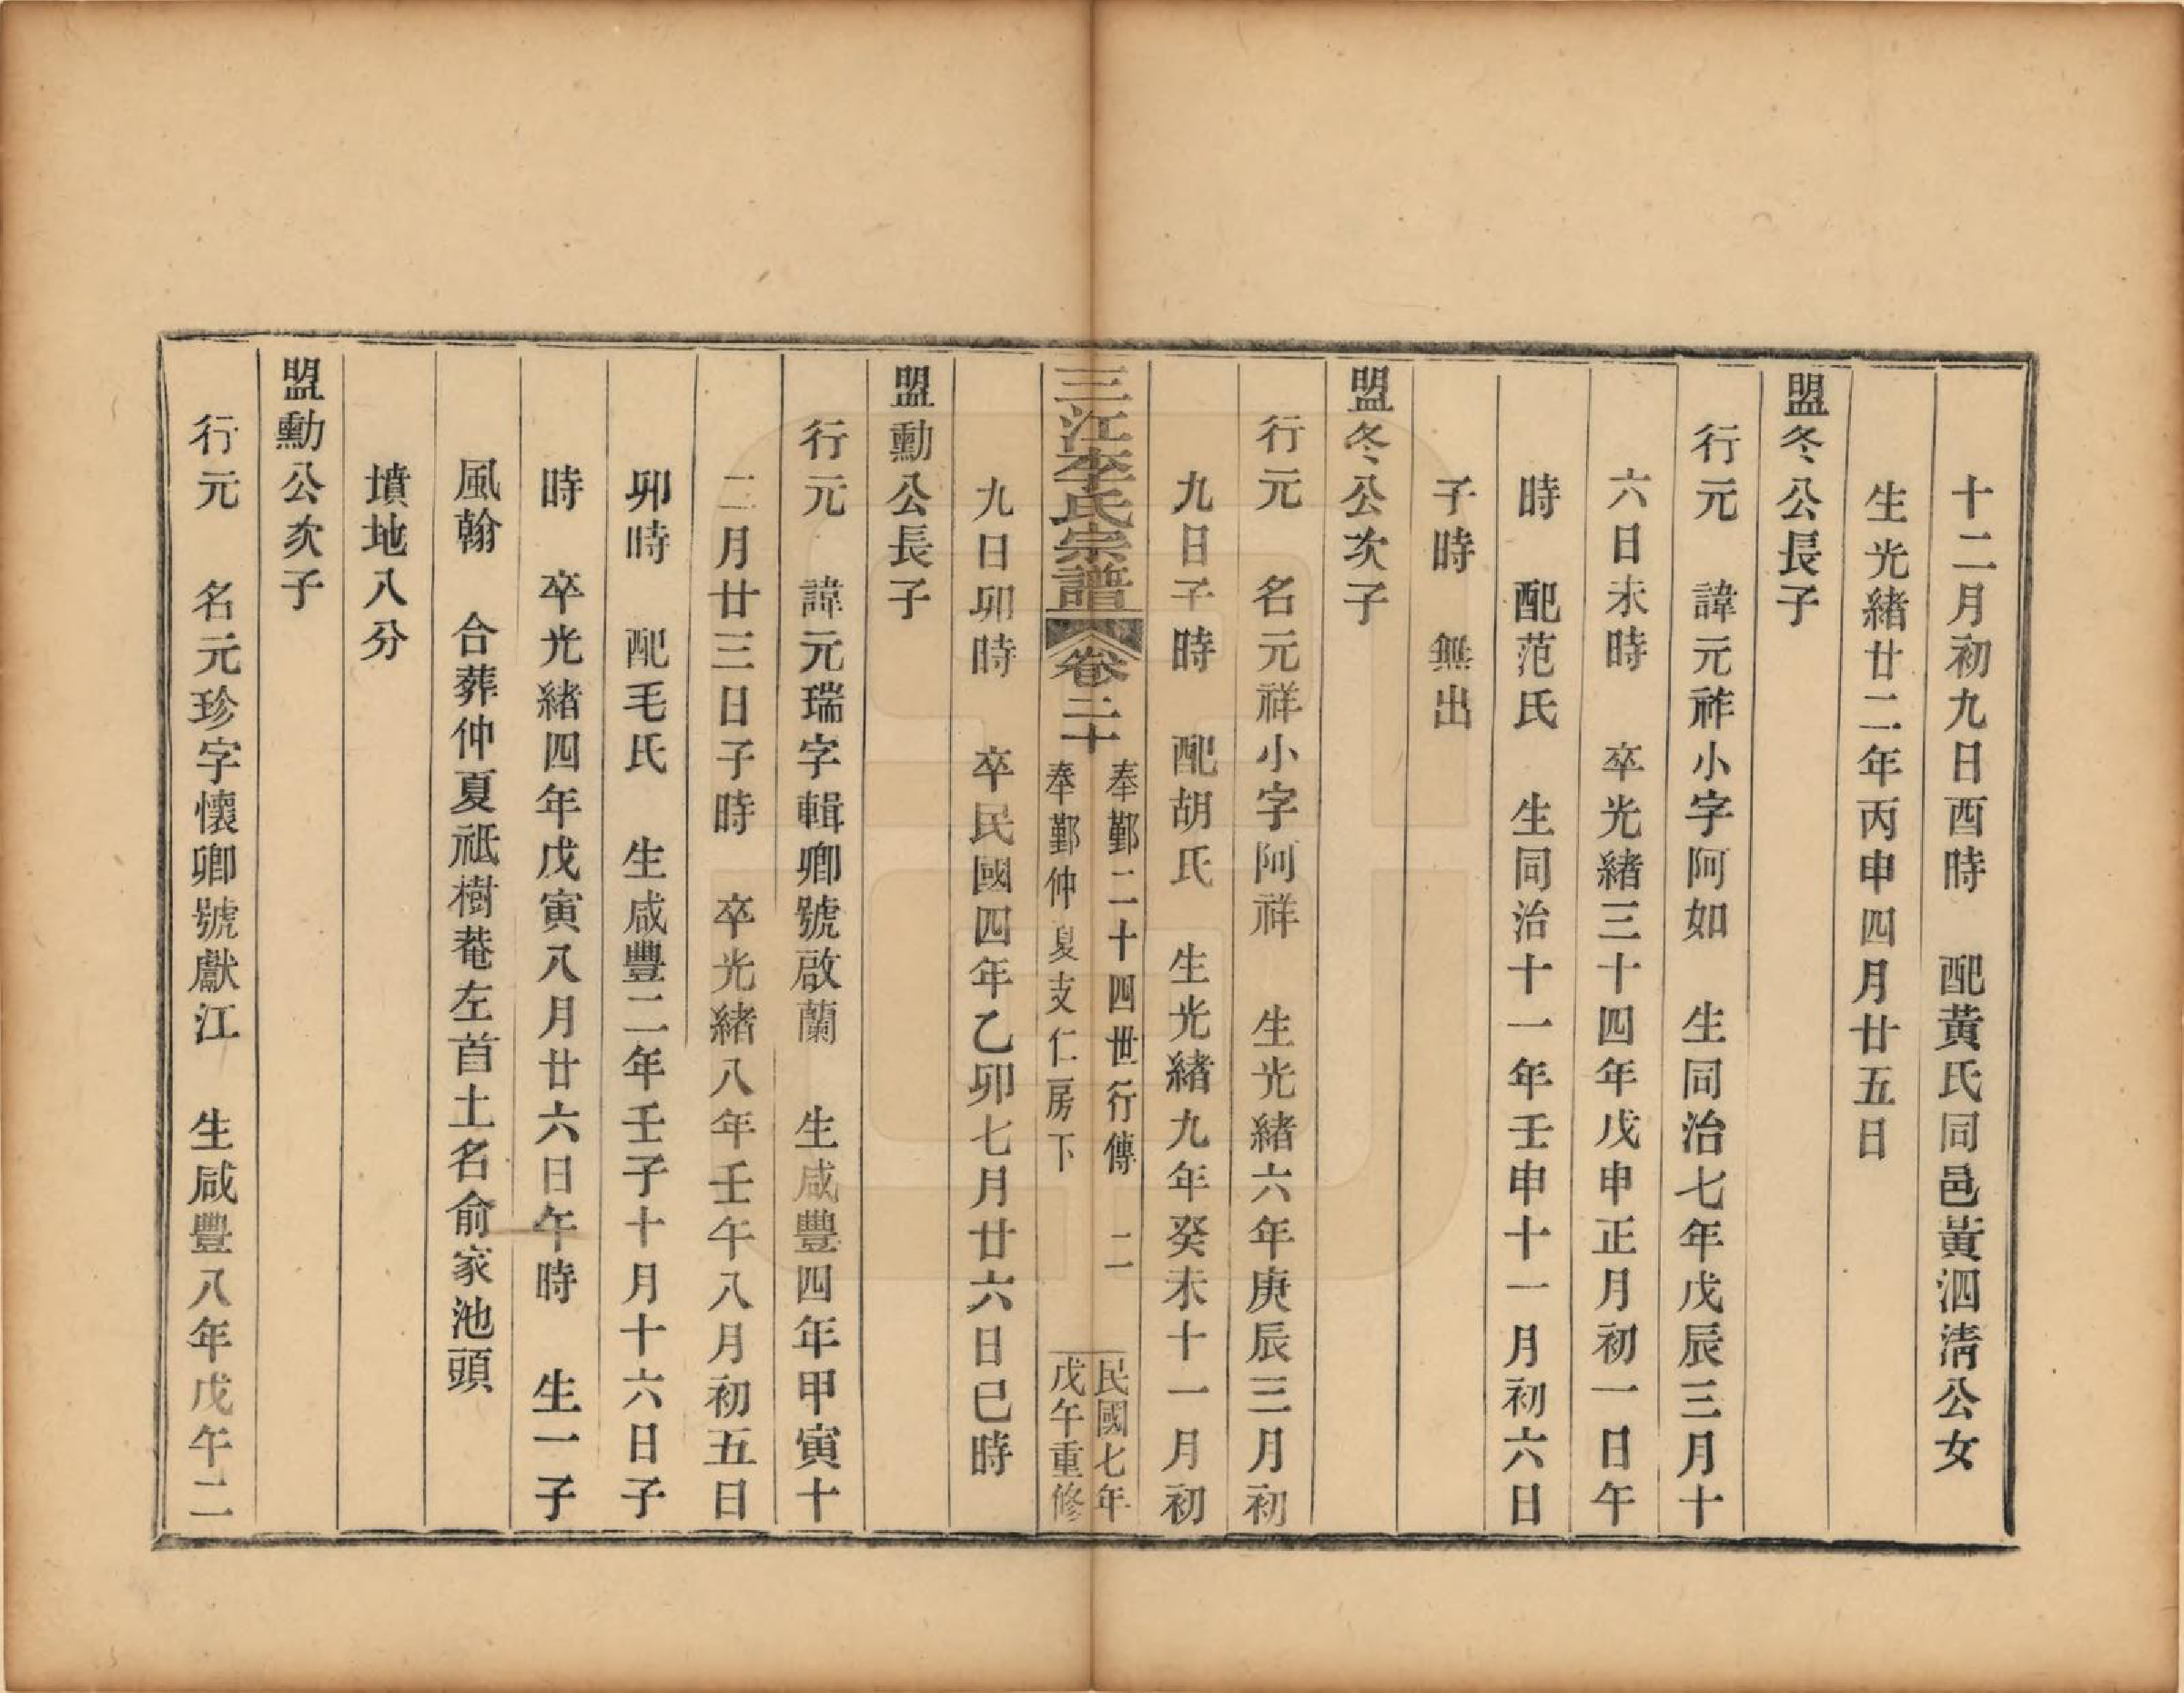 十二月初九日酉時　配黃氏同邑黃泗淸公女
生光緒廿二年丙申四月廿五日
盟冬公長子
行元　諱元祚小字阿如　生同治七年戊辰三月十
六日未時　卒光緒三十四年戊申正月初一日午
時　配范氏　生同治十一年壬申十一月初六日
子時　無出
盟冬公次子
行元　名元祥小字阿祥　生光緒六年庚辰三月初
九日子時　配胡氏　生光緒九年癸未十一月初
三江李氏宗譜　卷二十　奉鄞二十四世行傳　二　民國七年
奉鄞仲夏支仁房下　戊午重修
九日卯時　卒民國四年乙卯七月廿六日巳時
盟勳公長子
行元　諱元瑞字輯卿號啟蘭　生咸豐四年甲寅十
二月廿三日子時　卒光緒八年壬午八月初五日
卯時　配毛氏　生咸豐二年壬子十月十六日子
時　卒光緒四年戊寅八月廿六日午時　生一子
風翰　合葬仲夏祗樹菴左首土名俞家池頭
墳地八分
盟勳公次子
行元　名元珍字懷卿號獻江　生咸豐八年戊午二